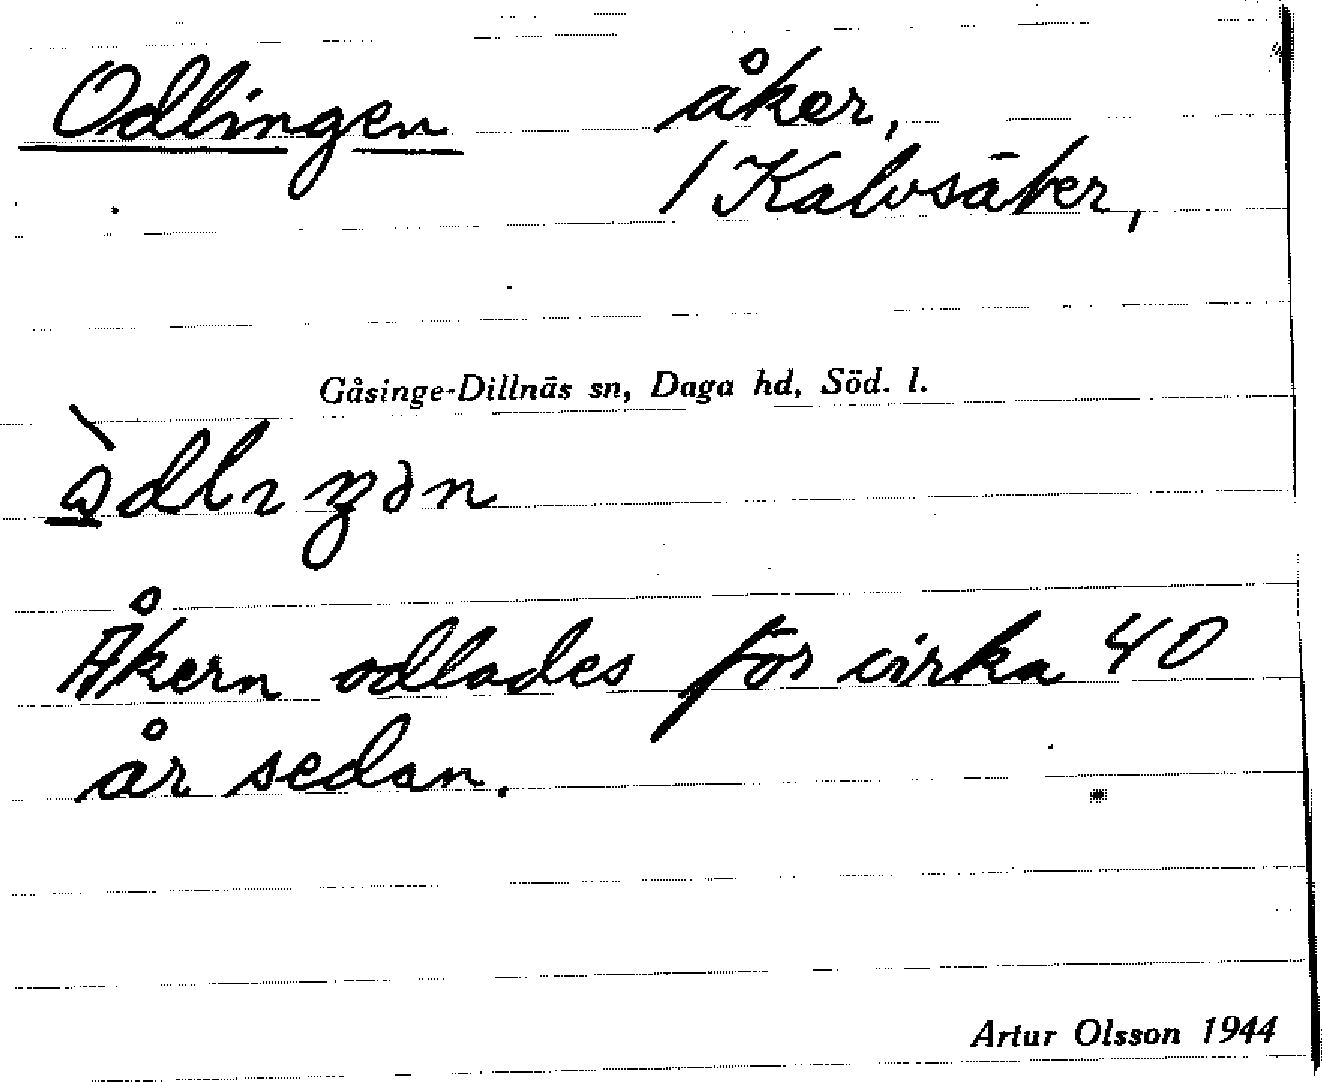 Odlingen åker,
/ Kalvsäter,
Gåsinge-Dillnäs sn, Daga hd, Söd. l.
Åkern odlades för cirka 40
år sedan.
Artur Olsson 1944